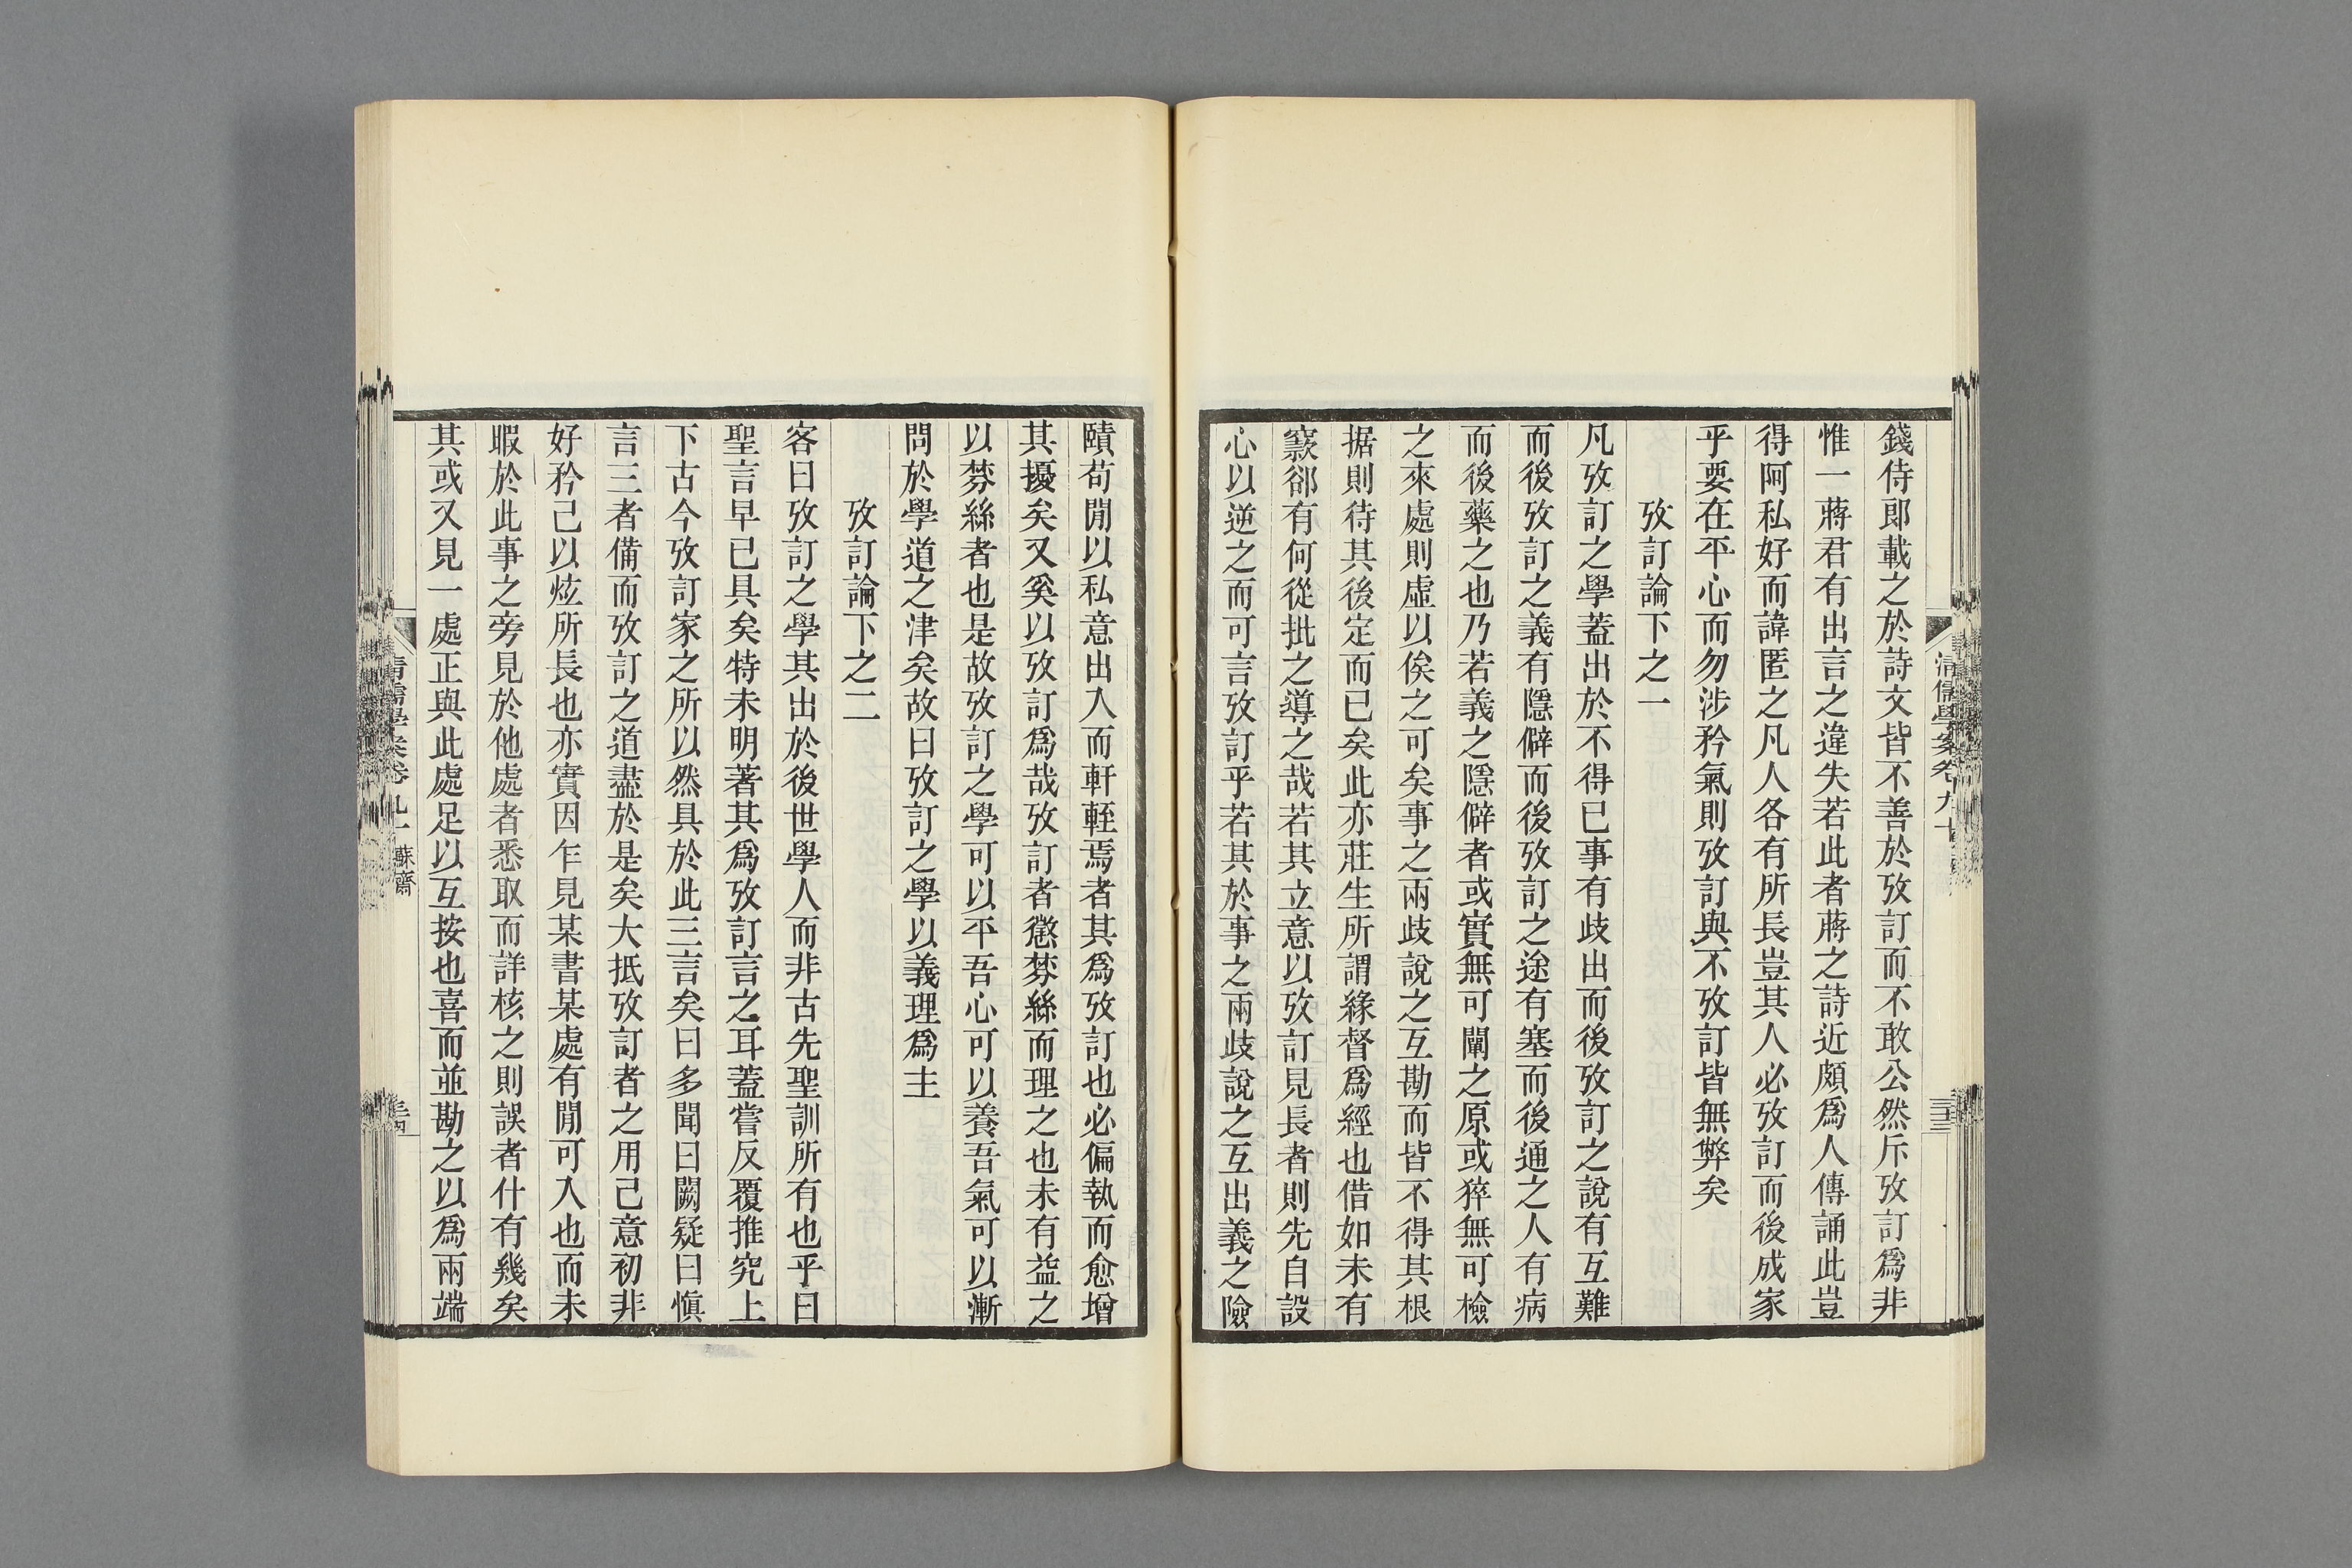 錢侍郎載之於詩文皆不善於攷訂而不敢公然斥攷訂爲非
惟一蔣君有出言之違失若此者蔣之詩近頗爲人傳誦此豈
得阿私好而諱匿之凡人各有所長豈其人必攷訂而後成家
乎要在平心而勿涉矜氣則攷訂與不攷訂皆無弊矣
攷訂論下之一
凡攷訂之學蓋出於不得已事有歧出而後攷訂之說有互難
而後攷訂之義有隱僻而後攷訂之途有塞而後通之人有病
而後藥之也乃若義之隱僻者或實無可闡之原或猝無可檢
之來處則虛以俟之可矣事之兩歧說之互勘而皆不得其根
据則待其後定而已矣此亦莊生所謂緣督爲經也借如未有
窾郤有何從批之導之哉若其立意以攷訂見長者則先自設
心以逆之而可言攷訂乎若其於事之兩歧說之互出義之險
賾苟閒以私意出入而軒輊焉者其爲攷訂也必偏執而愈增
其擾矣又奚以攷訂爲哉攷訂者懲棼絲而理之也未有益之
以棼絲者也是故攷訂之學可以平吾心可以養吾氣可以漸
問於學道之津矣故曰攷訂之學以義理爲主
攷訂論下之二
客曰攷訂之學其出於後世學人而非古先聖訓所有也乎曰
聖言早已具矣特未明著其爲攷訂言之耳蓋嘗反覆推究上
下古今攷訂家之所以然具於此三言矣曰多聞曰闕疑曰愼
言三者備而攷訂之道盡於是矣大抵攷訂者之用己意初非
好矜己以炫所長也亦實因乍見某書某處有閒可入也而未
暇於此事之旁見於他處者悉取而詳核之則誤者什有幾矣
其或又見一處正與此處足以互按也喜而並勘之以爲兩端
清儒學案卷九十
三十三
清儒學案卷九十
蘇齋
三十四